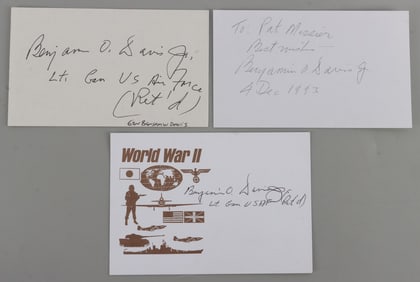 Benjamin O. Davis Jr.
Lt. Gen US Air Force
(Ret'd)
Gen Benjamin Davis
To: Pat Missier
Best wishes
Benjamin O Davis Jr.
4 Dec 1993
World War II
Benjamin O. Davis Jr.
Lt Gen USAF (Ret'd)